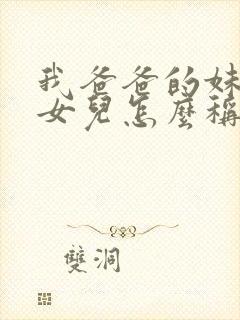 我爸爸的妹
女兒怎麼稱
雙洞